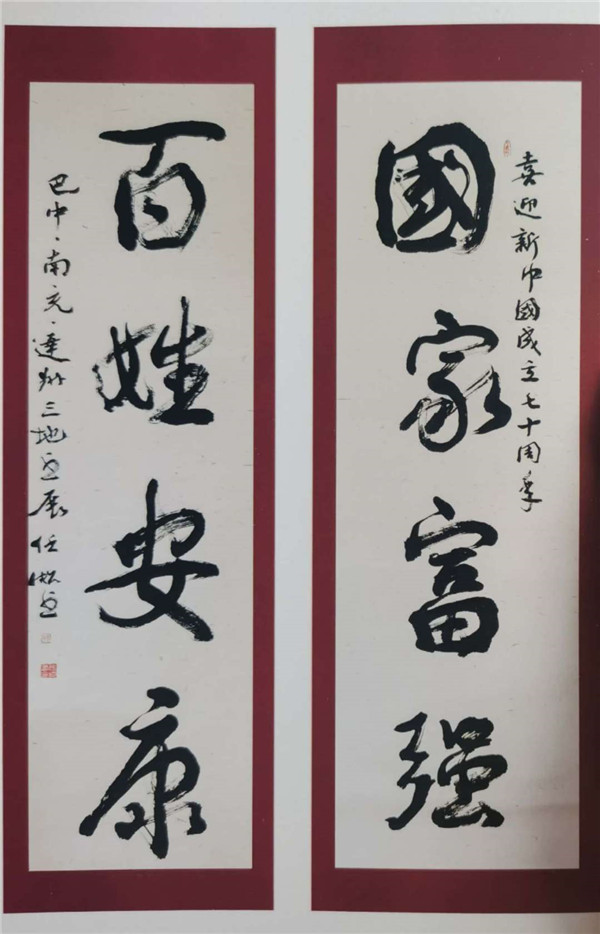 喜迎新中國成立七十周年
國家富强
百姓安康
巴中、南充、達州三地书展任